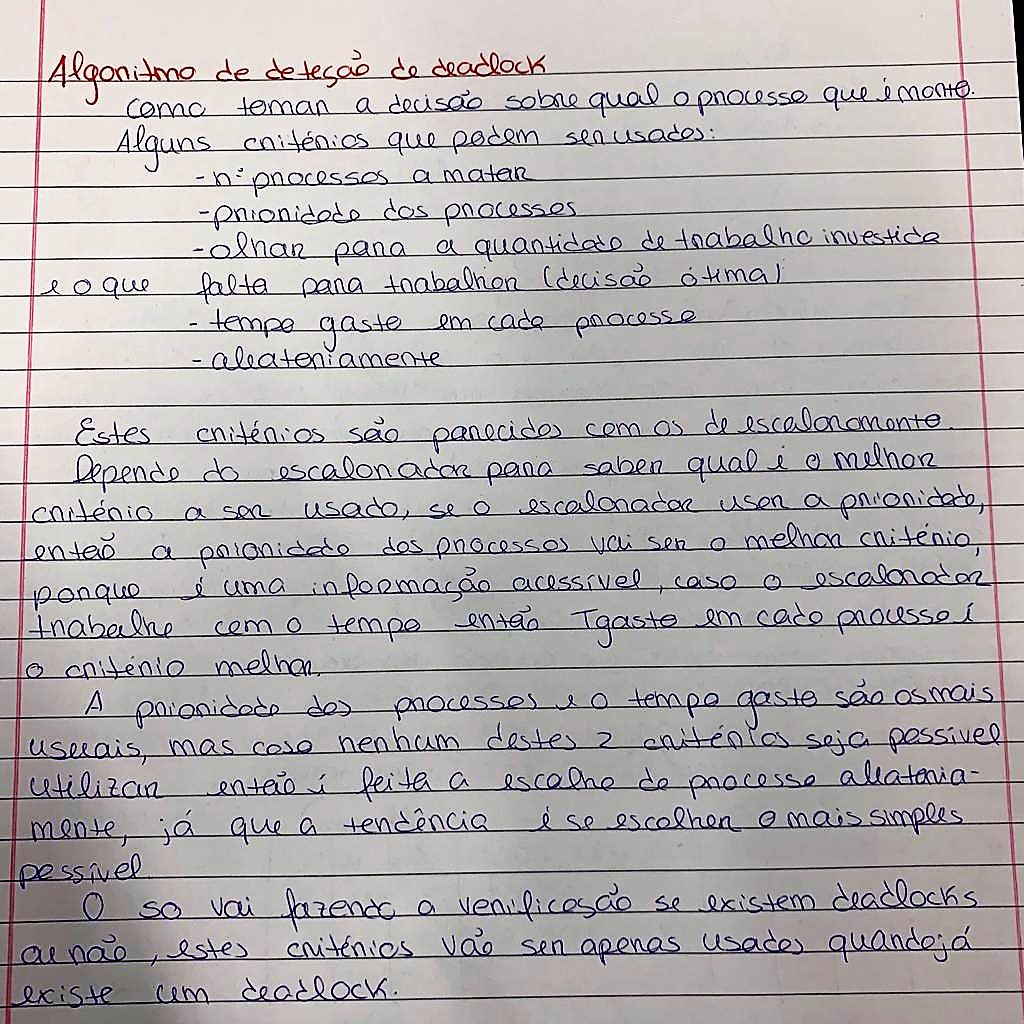 Algoritmo de deteção de deadlock
Como tomar a decisão sobre qual o processo que é morto.
Alguns critérios que podem ser usados:
- nº processos a matar
- prioridade dos processos
- olhar para a quantidade de trabalho investido
e o que falta para trabalhar (decisão ótima)
- tempo gasto em cada processo
- aleatoriamente
Estes critérios são parecidos com os de escalonamento.
Depende do escalonador para saber qual é o melhor
critério a ser usado, se o escalonador usar a prioridade,
então a prioridade dos processos vai ser o melhor critério,
porque é uma informação acessível, caso o escalonador
trabalhe com o tempo então Tgasto em cada processo é
o critério melhor.
A prioridade dos processos e o tempo gasto são os mais
usuais, mas caso nenhum destes 2 critérios seja possível
utilizar então é feita a escolha de processo aleatoria-
mente, já que a tendência é se escolher o mais simples
possível.
O so vai fazendo a verificação se existem deadlocks
ou não, estes critérios vão ser apenas usados quando já
existe um deadlock.